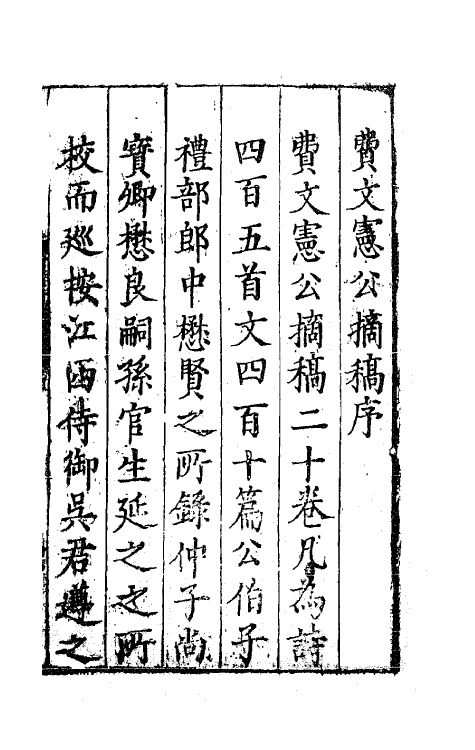 費文憲公摘稿序
費文憲公摘稿二十卷凡為詩
四百五首文四百十篇公伯子
禮部郎中懋賢之所錄仲子尚
寶卿懋良嗣孫官生延之之所
挍而廵按江西侍御吳君遵之